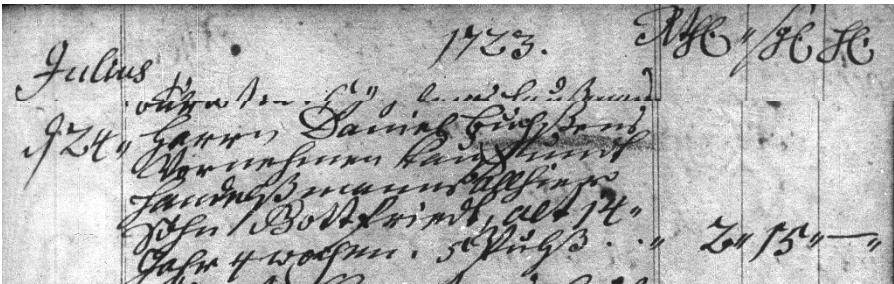 1723. Rthl. gl. hl.
Julius
d 24. Herrn Daniel Buchßens
Vornehmen Kauf unndt
Handelßmannß Allhier
Sohn Gottfriedt, alt 14.
Jahr 4 wochen. 5 Pulß. 2 " 15 " — "